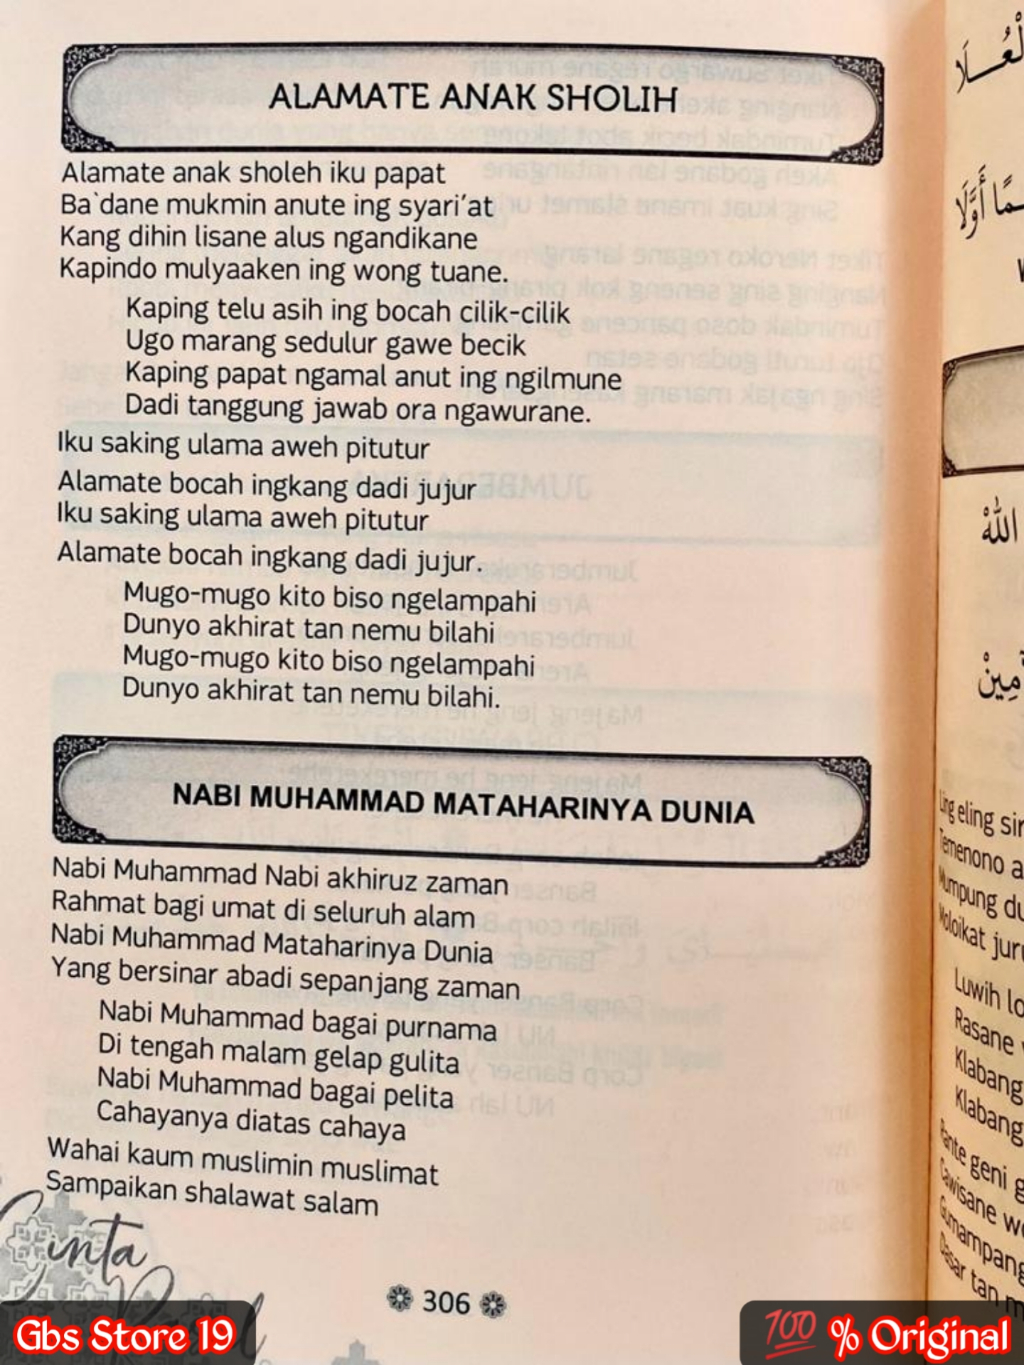 ALAMATE ANAK SHOLIH
Alamate anak sholeh iku papat
Ba`dane mukmin anute ing syari'at
Kang dihin lisane alus ngandikane
Kapindo mulyaaken ing wong tuane.
Kaping telu asih ing bocah cilik-cilik
Ugo marang sedulur gawe becik
Kaping papat ngamal anut ing ngilmune
Dadi tanggung jawab ora ngawurane.
Iku saking ulama aweh pitutur
Alamate bocah ingkang dadi jujur
Iku saking ulama aweh pitutur
Alamate bocah ingkang dadi jujur.
Mugo-mugo kito biso ngelampahi
Dunyo akhirat tan nemu bilahi
Mugo-mugo kito biso ngelampahi
Dunyo akhirat tan nemu bilahi.
NABI MUHAMMAD MATAHARINYA DUNIA
Nabi Muhammad Nabi akhiruz zaman
Rahmat bagi umat di seluruh alam
Nabi Muhammad Mataharinya Dunia
Yang bersinar abadi sepanjang zaman
Nabi Muhammad bagai purnama
Di tengah malam gelap gulita
Nabi Muhammad bagai pelita
Cahayanya diatas cahaya
Wahai kaum muslimin muslimat
Sampaikan shalawat salam
Cinta
Rasul
306
أَوَّلَا
اللهْ
eling
Temenono
Mumpung
Moloikat
Luwih
Rasane
Klabang
Klabang
geni
Cawisane
Gumampang
Dasar tan
Gbs Store 19
💯 % Original